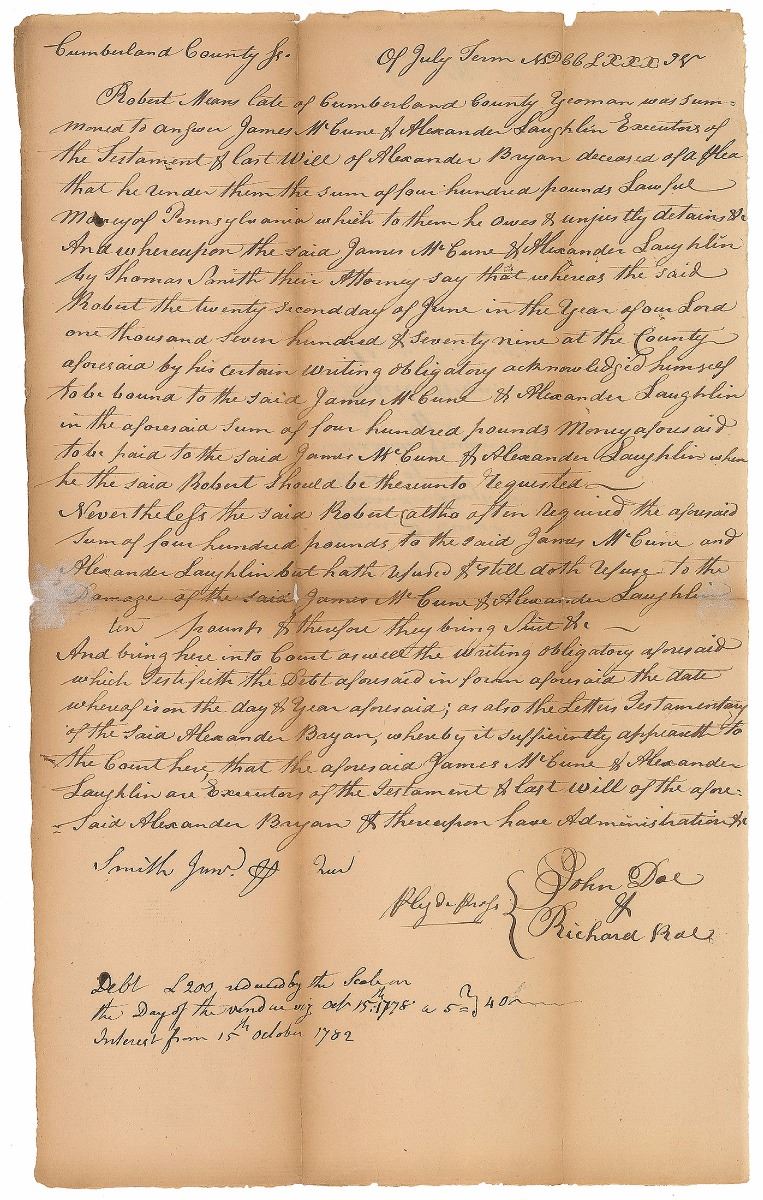 Cumberland County Ss. Of July Term MDCCLXXXIV
Robert Means late of Cumberland County Yeoman was sum=
moned to answer James McCune & Alexander Laughlin Executors of
the Testament & last Will of Alexander Bryan deceased of a plea
that he render them the sum of four hundred pounds Lawful
Money of Pennsylvania which to them he owes & unjustly detains &c
And whereupon the said James McCune & Alexander Laughlin
by Thomas Smith their Attorney say that whereas the said
Robert the twenty second day of June in the Year of our Lord
one thousand seven hundred & seventy nine at the County
aforesaid by his certain writing obligatory acknowledged himself
to be bound to the said James McCune & Alexander Laughlin
in the aforesaid Sum of four hundred pounds Money aforesaid
to be paid to the said James McCune & Alexander Laughlin when
he the said Robert should be thereunto requested
Nevertheless the said Robert (altho often required the aforesaid
Sum of four hundred pounds to the said James McCune and
Alexander Laughlin but hath refused & still doth refuse to the
Damage of the said James McCune & Alexander Laughlin
ten pounds & therefore they bring Suit &c
And bring here into Court as well the writing obligatory aforesaid
which Testifieth the Debt aforesaid in form aforesaid the date
whereof is on the day & Year aforesaid; as also the Letters Testamentary
of the said Alexander Bryan, whereby it sufficiently appeareth to
the Court here, that the aforesaid James McCune & Alexander
Laughlin are Executors of the Testament & last Will of the afore=
=said Alexander Bryan & thereupon have Administration &c
Smith Junr. Quer
Plegs de Pros { John Doe
&
Richard Roe
Debt £200, reduced by the Scale on
the Day of the vendue viz Oct 15th 1778 a 5 } 40
Interest from 15th October 1782